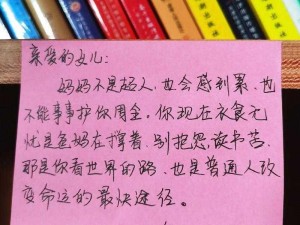 亲爱的女儿：
妈妈不是超人，也会感到累，也
不能事事护你周全。你现在衣食无
忧是爸妈在撑着，别抱怨读书苦，
那是你看世界的路，也是普通人改
变命运的最快途径。